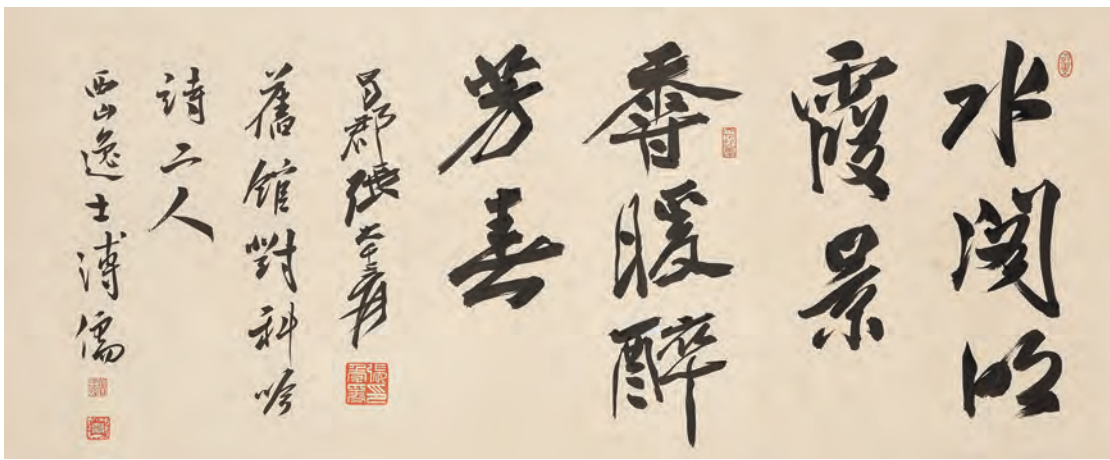 水閣明
霞景
暖醉
芳春
蜀郡張大千爰
舊館對科吟
詩二人
西山逸士溥儒